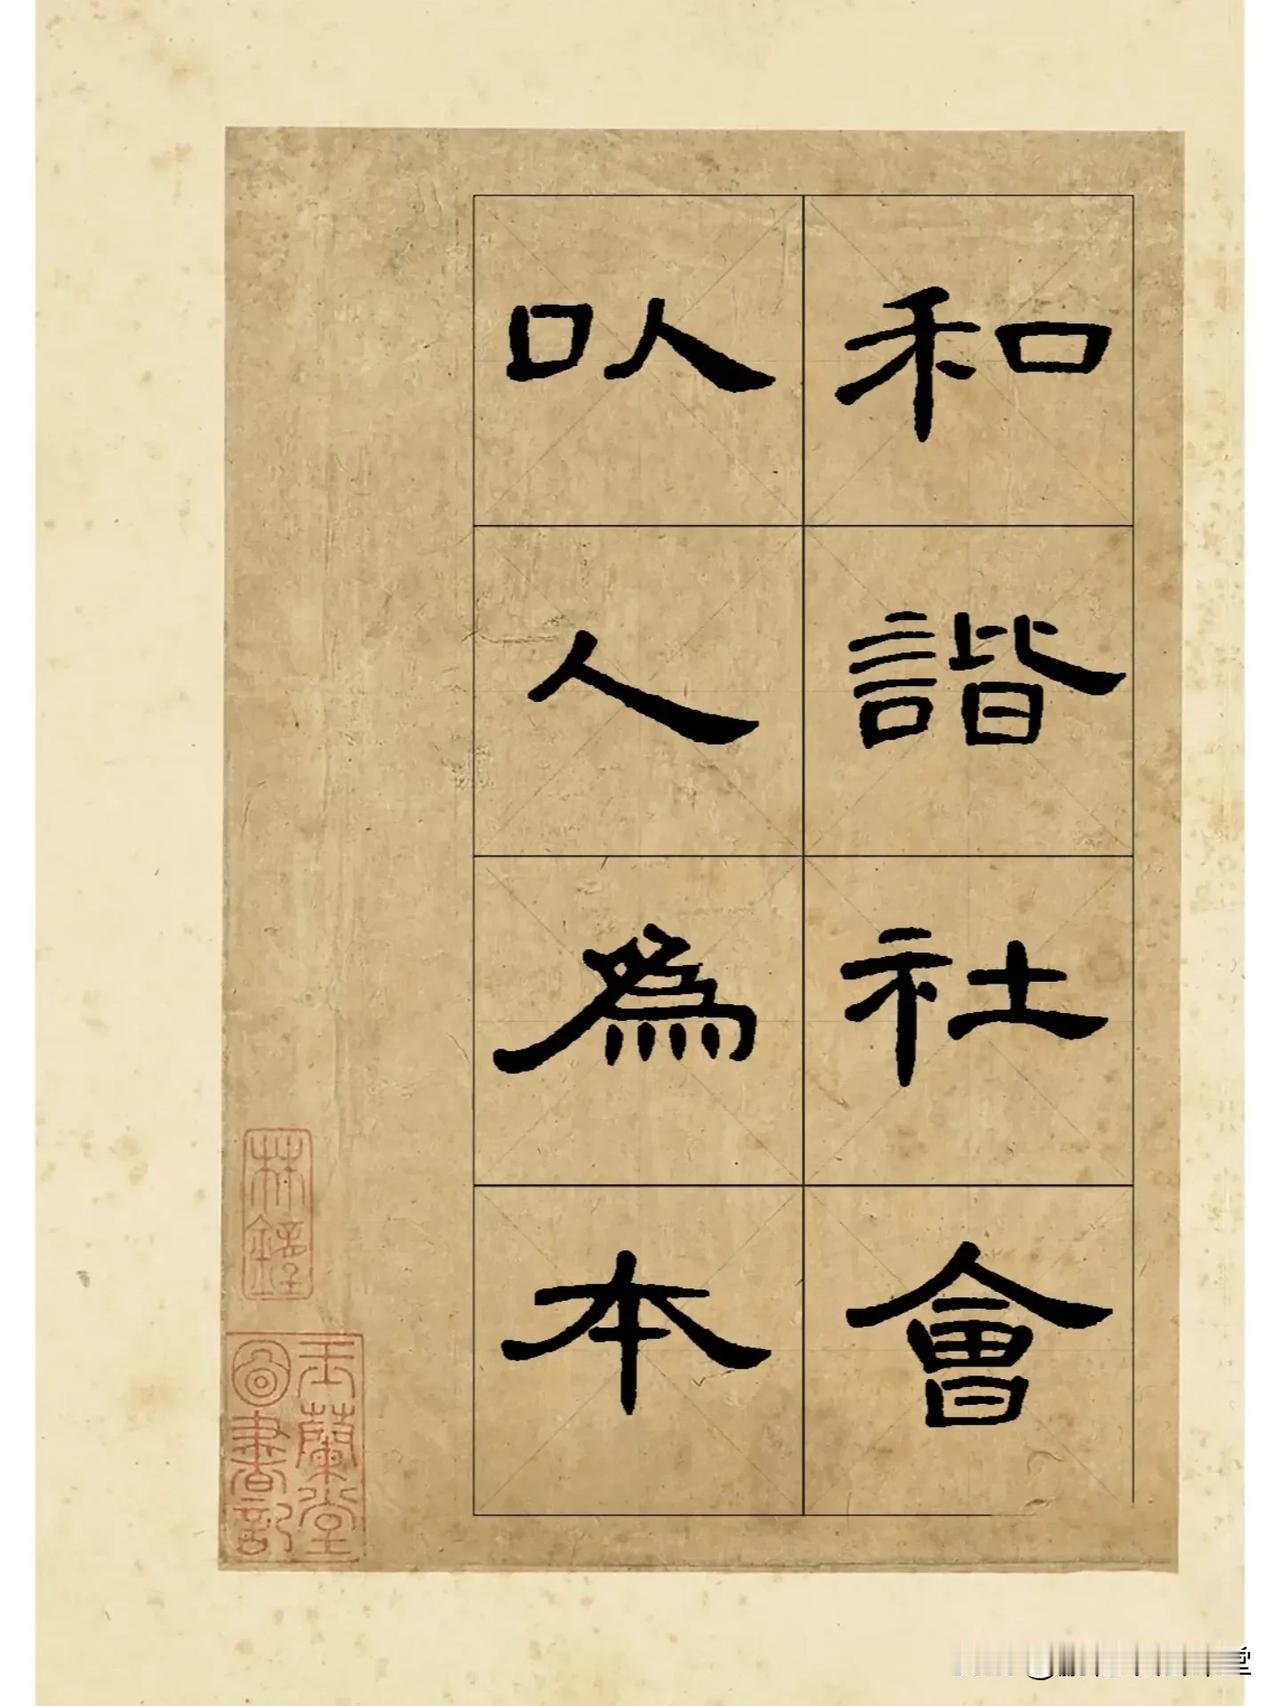 和諧社會
以人為本
玉蘭堂
圖書記